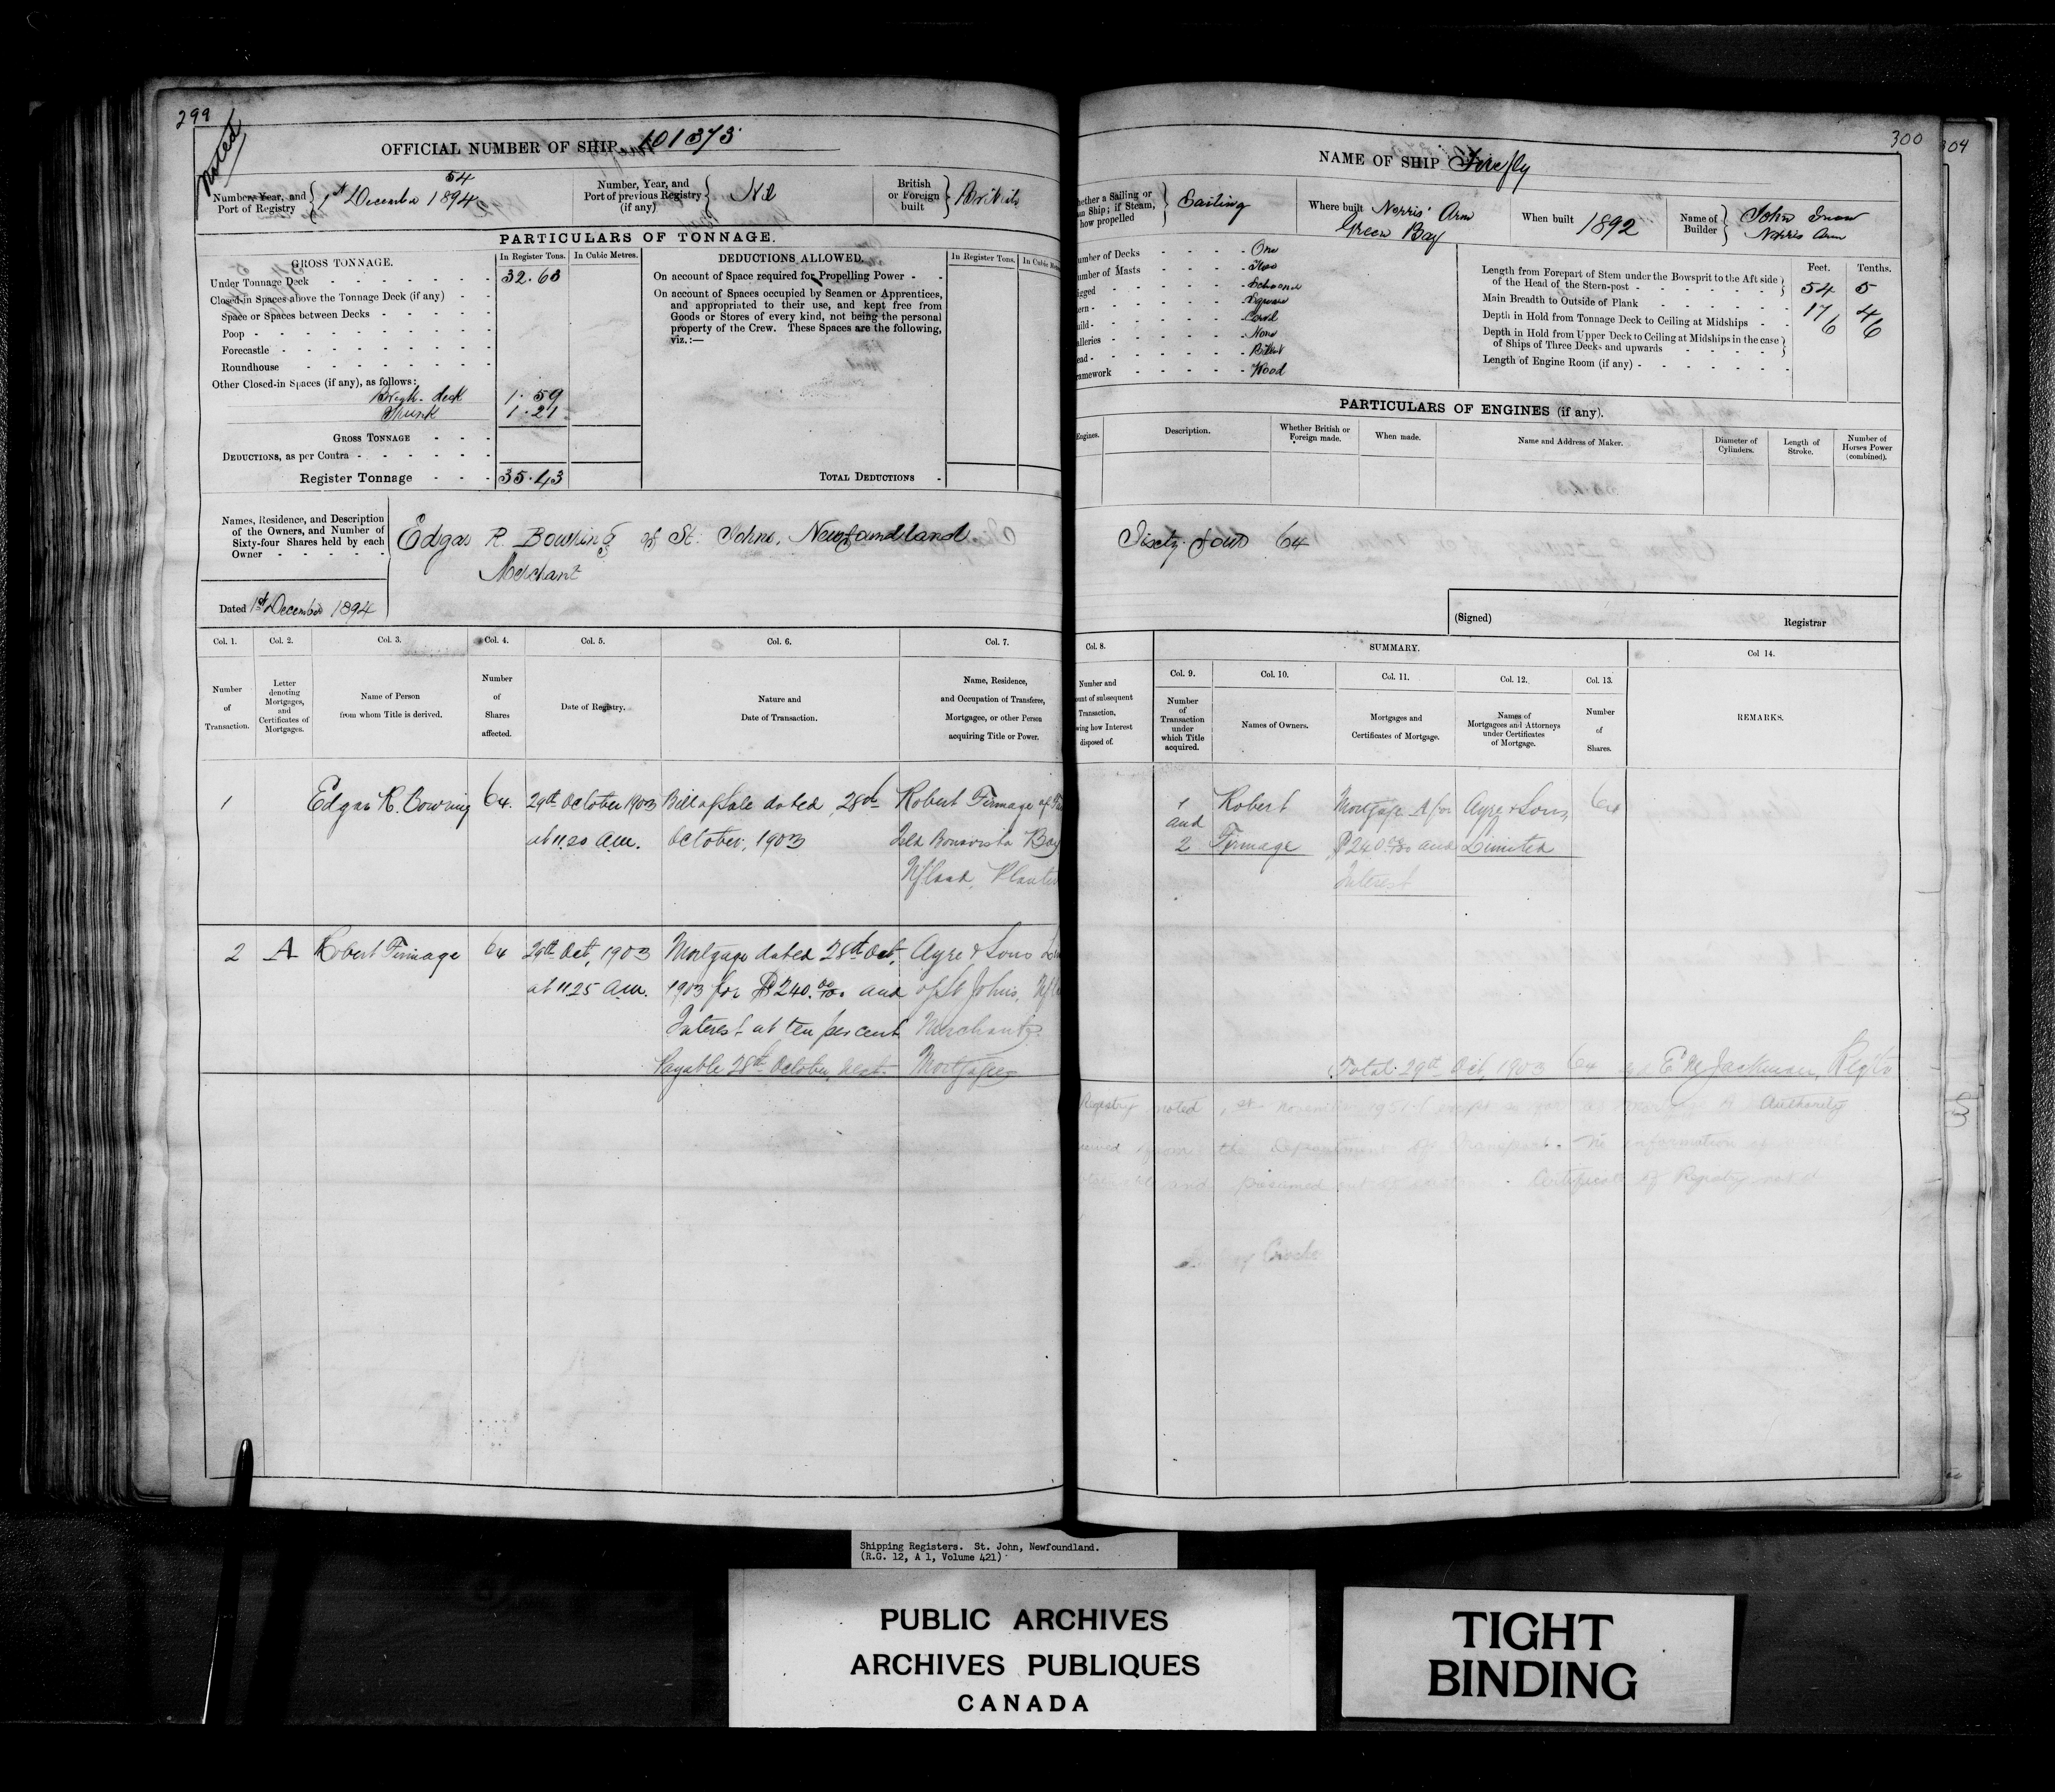 299
Noted
OFFICIAL NUMBER OF SHIP 101373
54
Number, Year, and
Port of Registry
1st December 1894
Number, Year, and
Port of previous Registry
(if any)
Nil
British
or Foreign
built
British
PARTICULARS OF TONNAGE.
GROSS TONNAGE.
In Register Tons.
In Cubic Metres.
Under Tonnage Deck 32.63
Closed-in Spaces above the Tonnage Deck (if any)
Space or Spaces between Decks
Poop
Forecastle
Roundhouse
Other Closed-in Spaces (if any), as follows:
deck 1.59
Trunk 1.21
GROSS TONNAGE
DEDUCTIONS, as per Contra
Register Tonnage 35.43
DEDUCTIONS ALLOWED.
In Register Tons.
In Cubic
On account of Space required for Propelling Power
On account of Spaces occupied by Seamen or Apprentices,
and appropriated to their use, and kept free from
Goods or Stores of every kind, not being the personal
property of the Crew. These Spaces are the following,
viz.:—
TOTAL DEDUCTIONS
Names, Residence, and Description
of the Owners, and Number of
Sixty-four Shares held by each
Owner
Edgar R. Bowring of St. Johns, Newfoundland
Merchant
Dated 1st December 1894
Col. 1.
Number
of
Transaction.
Col. 2.
Letter
denoting
Mortgages,
and
Certificates of
Mortgages.
Col. 3.
Name of Person
from whom Title is derived.
Col. 4.
Number
of
Shares
affected.
Col. 5.
Date of Registry.
Col. 6.
Nature and
Date of Transaction.
Col. 7.
Name, Residence,
and Occupation of Transferee,
Mortgagee, or other Person
acquiring Title or Power.
1
Edgar R. Bowring
64.
29th October 1903
at 11.20 a.m.
Bill of Sale dated, 28th
October, 1903
Robert Firmage of
Bonavista Bay
Nfland, Planter
2
A
Robert Firmage
64
29th Oct, 1903
at 11.25 a.m.
Mortgage dated 28th Oct,
1903 for $240.00/100 and
Interest at ten per cent
Payable 28th October next.
Ayre & Sons
of St Johns,
Merchants
Mortgagees
300
304
NAME OF SHIP Firefly
Whether a Sailing or
Ship; if Steam,
how propelled
Sailing
Where built Norris' Arm
Green Bay
When built 1892
Name of
Builder
John Snow
Norris Arm
Number of Decks One
Number of Masts Two
Rigged Schooner
Stern Square
Build Carvel
Galleries None
Head Billet
Framework Wood
Feet. Tenths.
Length from Forepart of Stem under the Bowsprit to the Aft side
of the Head of the Stern-post 54 5
Main Breadth to Outside of Plank 17 4
Depth in Hold from Tonnage Deck to Ceiling at Midships 6 6
Depth in Hold from Upper Deck to Ceiling at Midships in the case
of Ships of Three Decks and upwards
Length of Engine Room (if any)
PARTICULARS OF ENGINES (if any).
Engines.
Description.
Whether British or
Foreign made.
When made.
Name and Address of Maker.
Diameter of
Cylinders.
Length of
Stroke.
Number of
Horses Power
(combined).
Sixty-four 64
(Signed)
Registrar
Col. 8.
Number and
of subsequent
Transaction,
how Interest
disposed of.
SUMMARY.
Col. 9.
Number
of
Transaction
under
which Title
acquired.
Col. 10.
Names of Owners.
Col. 11.
Mortgages and
Certificates of Mortgage.
Col. 12.
Names of
Mortgagees and Attorneys
under Certificates
of Mortgage.
Col. 13.
Number
of
Shares.
Col 14.
REMARKS.
1
and
2
Robert
Firmage
Mortgage A for
$240.00/100 and
Interest
Ayre & Sons,
Limited
64
Total 29th Oct, 1903 64 E M Jackman, Regtr
Registry noted 1st November 1951 Authority
from the Department of Transport. No information
and presumed out of Certificate of Registry not
Shipping Registers. St. John, Newfoundland.
(R.G. 12, A 1, Volume 421)
PUBLIC ARCHIVES
ARCHIVES PUBLIQUES
CANADA
TIGHT
BINDING